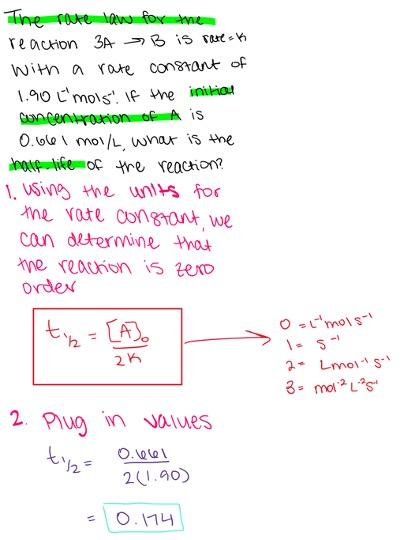 The rate law for the
reaction 3A → B is rate=k
with a rate constant of
1.90 L⁻¹mols⁻¹. If the initial
concentration of A is
0.661 mol/L, what is the
half-life of the reaction?
1. Using the units for
the rate constant, we
can determine that
the reaction is zero
order
t₁/₂ = [A]₀ / 2K
0 = L⁻¹mols⁻¹
1 = s⁻¹
2 = Lmol⁻¹s⁻¹
3 = mol⁻²L⁻²s⁻¹
2. Plug in values
t₁/₂ = 0.661 / 2(1.90)
= 0.174